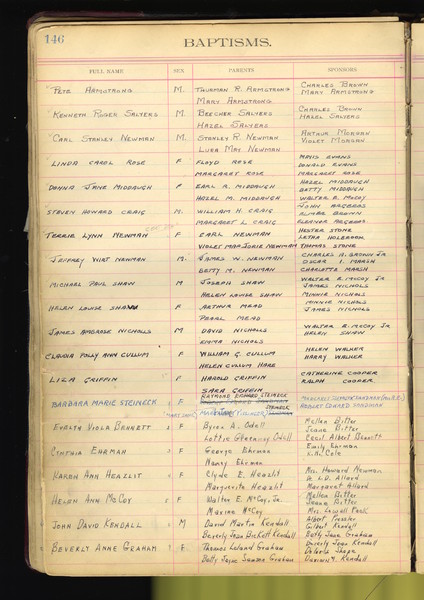 146
BAPTISMS.
FULL NAME SEX PARENTS SPONSORS
Pete Armstrong M. Thurman R. Armstrong Charles Brown
Mary Armstrong Mary Armstrong
Kenneth Roger Salyers M. Beecher Salyers Charles Brown
Hazel Salyers Hazel Salyers
Carl Stanley Newman M. Stanley R. Newman Arthur Morgan
Luea May Newman Violet Morgan
Linda Carol Rose F Floyd Rose Mavis Evans
Donald Evans
Margaret Rose Margaret Rose
Donna Jane Middaugh F Earl R. Middaugh Hazel Middaugh
Betty Middaugh
Hazel M. Middaugh Walter E. McCoy
Steven Howard Craig M. William H. Craig John
Elmer Brown
Margaret L. Craig Eleanor
Terrie Lynn Newman F Earl Newman Hester Stone
Letha Holbrook
Violet Marjorie Newman Thomas Stone
Jeffrey Wirt Newman M. James W. Newman Charles H. Brown Jr
Oscar I. Marsh
Betty M. Newman Charlotte Marsh
Michael Paul Shaw M Joseph Shaw Walter E. McCoy Jr
James Nichols
Helen Louise Shaw Minnie Nichols
Helen Louise Shaw F Arthur Mead Minnie Nichols
James Nichols
Pearl Mead
James Ambrose Nicholls M David Nichols Walter E. McCoy Jr
Helen Shaw
Emma Nichols
Claudia Polly Ann Cullum F William G. Cullum Helen Walker
Harry Walker
Helen Cullum Hare
Liza Griffin F Harold Griffin Catherine Cooper
Ralph Cooper
Sara Griffin
Barbara Marie Steineck F Raymond Richard Steineck
Steineck Herbert Edward Sandman
Evelyn Viola Bennett F Byron A. Odell Mellen Bitter
Jeane Bitter
Lottie Odell Cecil Albert Bennett
Cynthia Ehrman F George Ehrman Emily Ehrman
L.R. Cole
Nancy Ehrman
Karen Ann Heazlit F Clyde E. Heazlit Mrs. Howard Newman
Dr. L.D. Allard
Marguerite Heazlit Margaret Allard
Helen Ann McCoy F Walter E. McCoy, Jr. Mellen Bitter
Jeane Bitter
Maxine McCoy Mrs. Lowell Peck
John David Kendall M David Martin Kendall Albert Pressler
Gilbert Kendall
Beverly Jean Hickett Kendall Betty Jane Graham
Beverly Anne Graham F. Thomas Leland Graham Beverly Jean Kendall
Delores Shope
Betty Jayne Graham Kendall